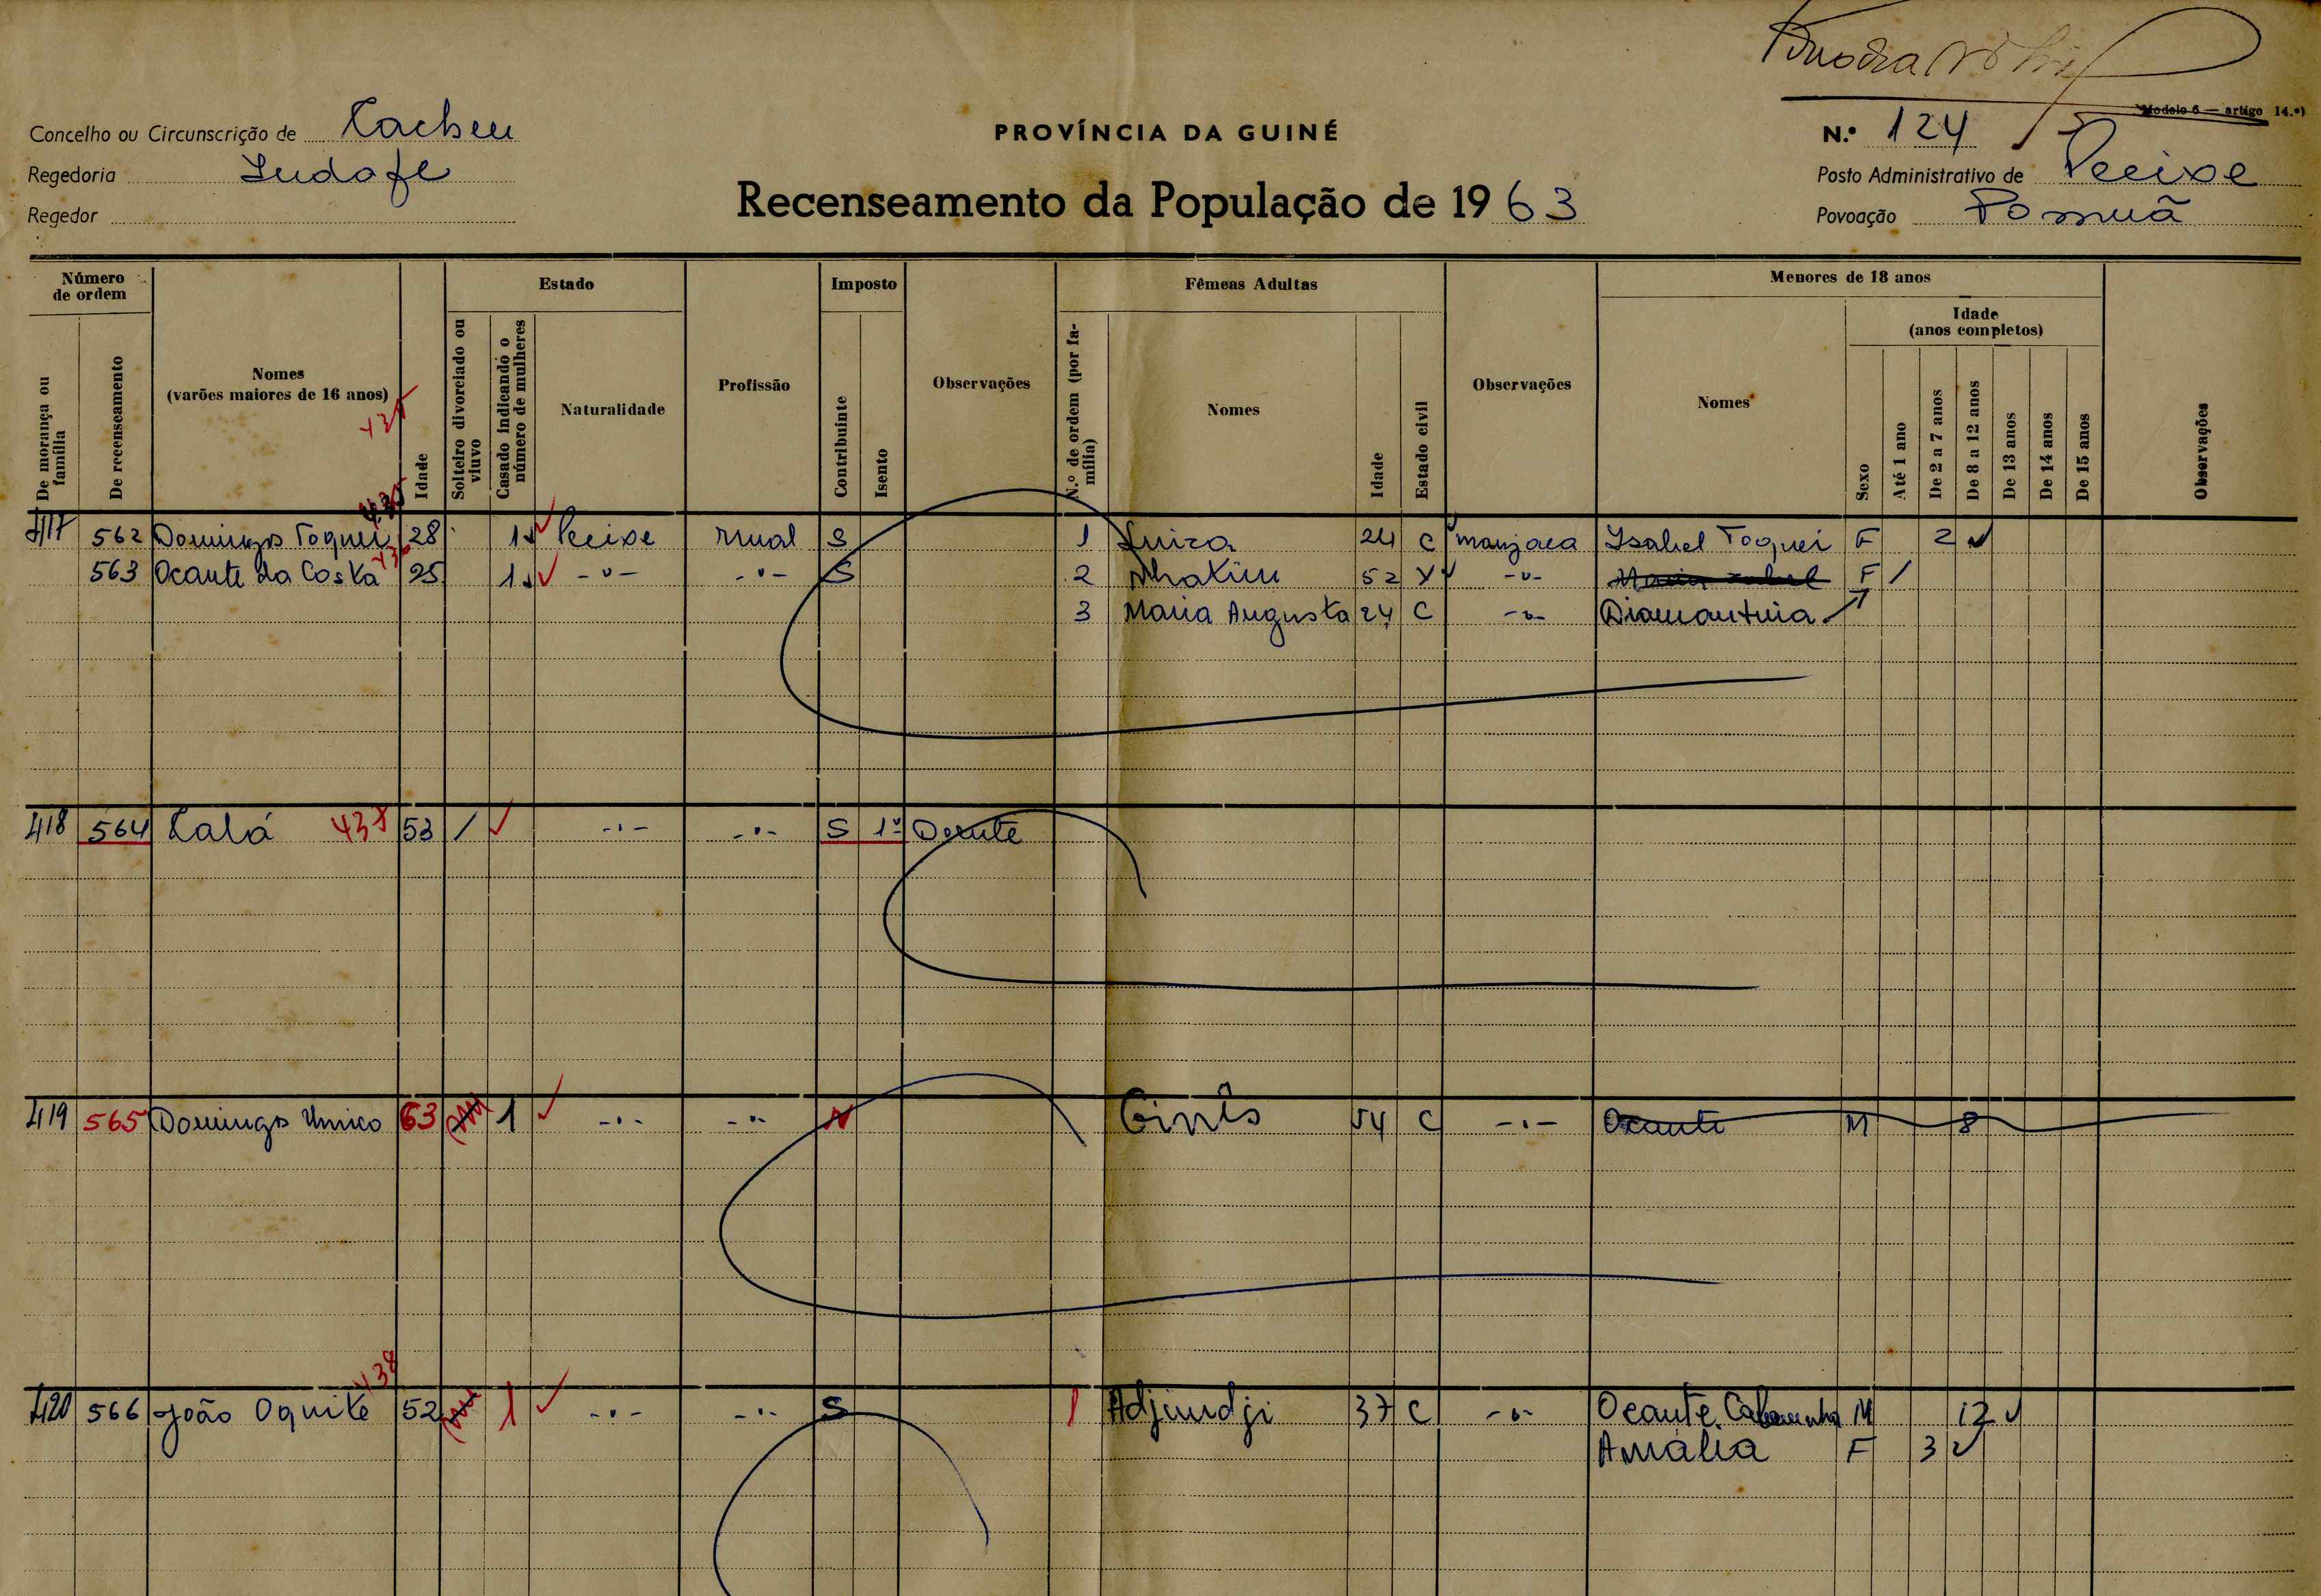 Modelo 6 — artigo 14.º)
Concelho ou Circunscrição de Cacheu
PROVÍNCIA DA GUINÉ
N.º 124
Regedoria
Posto Administrativo de Pecixe
Regedor
Recenseamento da População de 1963
Povoação
Número de ordem
Estado
Imposto
Fêmeas Adultas
Menores de 18 anos
Idade (anos completos)
De morança ou família
De recenseamento
Nomes (varões maiores de 16 anos)
Idade
Solteiro divorciado ou viuvo
Casado indicando o número de mulheres
Naturalidade
Profissão
Contribuinte
Isento
Observações
N.º de ordem (por família)
Nomes
Idade
Estado civil
Observações
Nomes
Sexo
Até 1 ano
De 2 a 7 anos
De 8 a 12 anos
De 13 anos
De 14 anos
De 15 anos
Observações
435
435
417 562 Domingos Toquei 28 1 Pecixe rural S 1 Luiza 24 C manjaca Isabel Toquei F 2
436
563 Ocante da Costa 25 1 -"- -"- S 2 52 V -"- F /
3 Maria Augusta 24 C -"- Diamantina
418 564 Calá 437 53 / -"- -"- S 1º Doente
419 565 Domingos Unico 63 1 -"- -"- N 54 C -"- Ocante M 8
438
420 566 João Oquite 52 1 -"- -"- S 1 Adjundji 37 C -"- Ocante M 12
Amália F 3